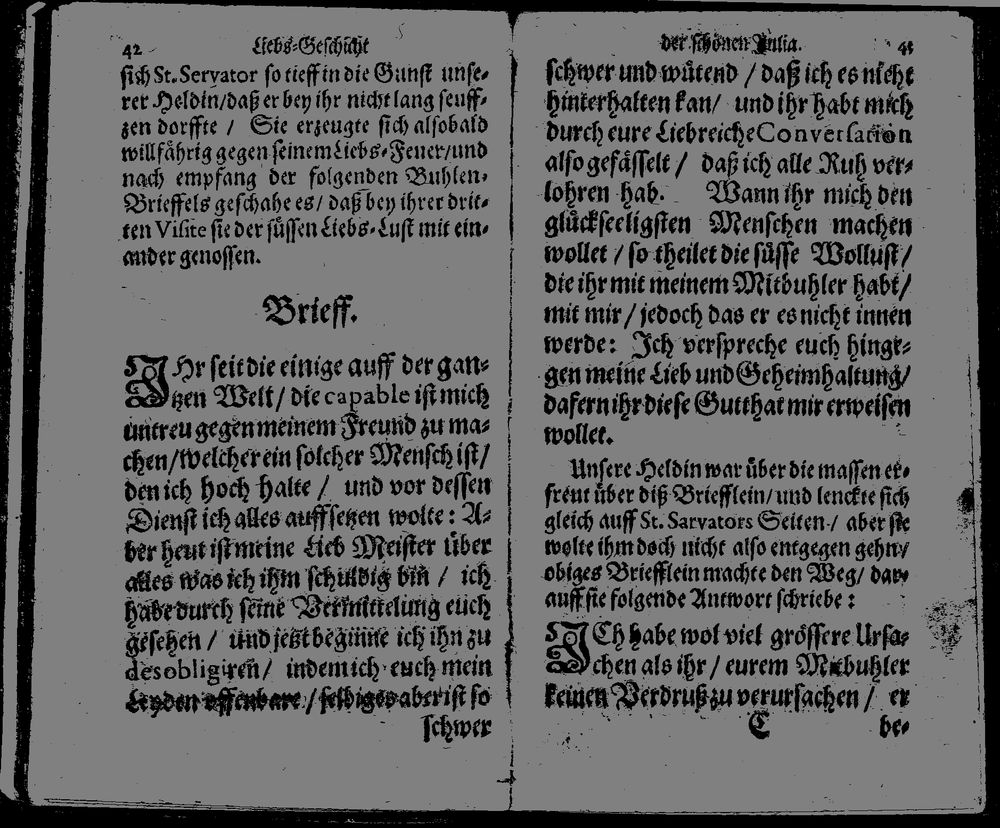 42 Liebs-Geschicht
sich St. Servator so tieff in die Gunst unse-
rer Heldin/daß er bey ihr nicht lang seuff-
zen dorffte / Sie erzeugte sich alsobald
willfährig gegen seinem Liebs-Feuer/und
nach empfang der folgenden Buhlen-
Brieffels geschahe es/ daß bey ihrer drit-
ten Visite sie der süssen Liebs-Lust mit ein-
ander genossen.
Brieff.
IHr seit die einige auff der gan-
tzen Welt/ die capable ist mich
untreu gegen meinem Freund zu ma-
chen/welcher ein solcher Mensch ist/
den ich hoch halte / und vor dessen
Dienst ich alles auffsetzen wolte: A-
ber heut ist meine Lieb Meister über
alles was ich ihm schuldig bin / ich
habe durch seine Vermittelung euch
gesehen / und jetzt beginne ich ihn zu
desobligiren/ indem ich euch mein
Leyden offenbare / selbiges aber ist so
schwer
der schönen Julia. 43
schwer und wütend / daß ich es nicht
hinterhalten kan/ und ihr habt mich
durch eure Liebreiche Conversation
also gefässelt / daß ich alle Ruh ver-
lohren hab. Wann ihr mich den
glückseeligsten Menschen machen
wollet / so theilet die süsse Wollust/
die ihr mit meinem Mitbuhler habt/
mit mir / jedoch das er es nicht innen
werde: Ich verspreche euch hinge-
gen meine Lieb und Geheimhaltung/
dafern ihr diese Gutthat mir erweisen
wollet.
Unsere Heldin war über die massen er-
freut über diß Briefflein/ und lenckte sich
gleich auff St. Sarvators Seiten / aber sie
wolte ihm doch nicht also entgegen gehn/
obiges Briefflein machte den Weg/ dar-
auff sie folgende Antwort schriebe:
ICh habe wol viel grössere Ursa-
chen als ihr / eurem Mitbuhler
keinen Verdruß zu verursachen / er
C be-